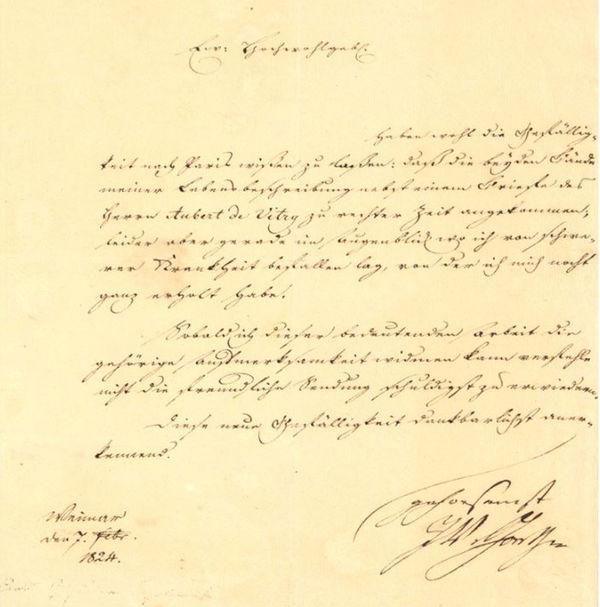 Ew: Hochwohlgeb.
haben wohl die Gefällig-
keit nach Paris wissen zu lassen: daß die beyden Bände
meiner Lebensbeschreibung nebst einem Briefe des
Herrn Aubert de Vitry zu rechter Zeit angekommen,
leider aber gerade im Augenblick wo ich von schwe-
rer Krankheit befallen lag, von der ich mich noch
ganz erholt habe.
Sobald ich dieser bedeutenden Arbeit die
gehörige Aufmerksamkeit widmen kann verfehle
nicht die freundliche Sendung schuldigst zu erwiedern.
Diese neue Gefälligkeit dankbarlichst aner-
kennend.
gehorsamst
JWvGoethe
Weimar
den 7. Febr.
1824.